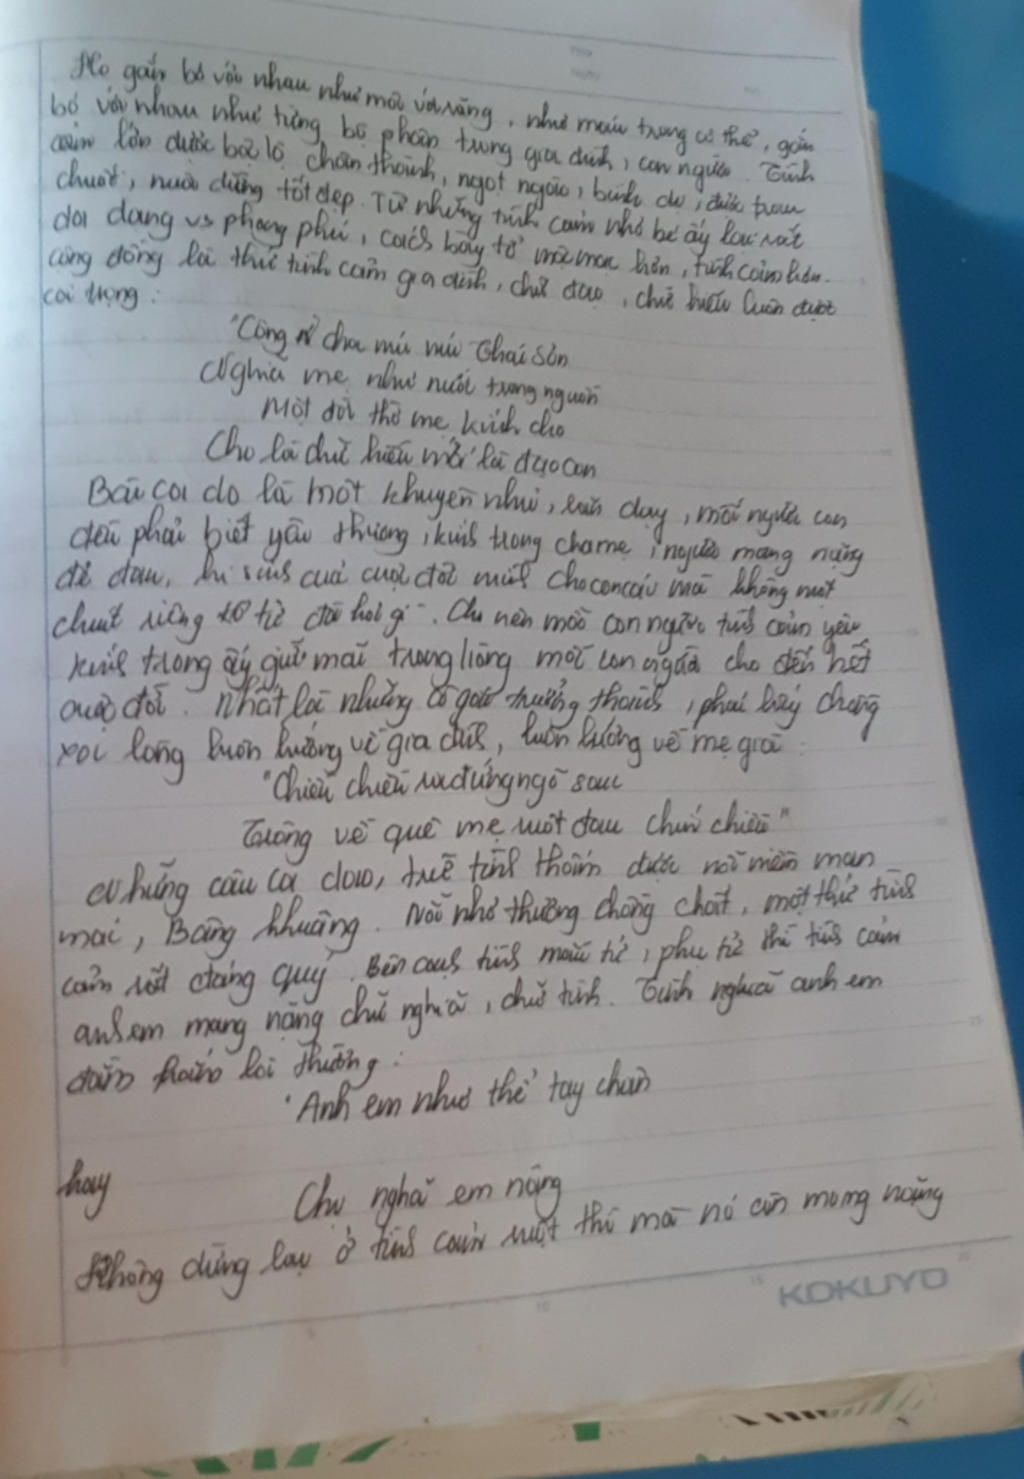 Họ gắn bó với nhau như môi với răng, như máu trong cơ thể, gắn
bó với nhau như từng bộ phận trong gia đình, con người. Tình
cảm lớn được bộc lộ chân thành, ngọt ngào, bình dị, được trau
chuốt, nuôi dưỡng tốt đẹp. Từ những tình cảm nhỏ bé ấy lại rất
đa dạng vs phong phú, cách bày tỏ hơn, tình cảm
cộng đồng là thứ tình cảm gia đình, chữ đạo, chữ hiếu luôn được
coi trọng:
"Công cha như núi Thái Sơn
Nghĩa mẹ như nước trong nguồn
Một đời thờ mẹ kính cha
Cho là chữ hiếu mới là đạo con
Bài ca dao là một khuyên nhủ, răn dạy, mỗi người con
đều phải biết yêu thương, kính trọng cha mẹ, người mang nặng
đẻ đau, hi sinh cả cuộc đời mình cho con cái mà không một
chút riêng tư đòi hỏi gì. Cho nên mỗi con người tình cảm yêu
kính trọng ấy giữ mãi trong lòng mỗi con người cho đến hết
cuộc đời. Nhất là những cô gái trưởng thành, phải lấy chồng
xa lòng luôn hướng về gia đình, luôn hướng về mẹ già:
"Chiều chiều ra đứng ngõ sau
Trông về quê mẹ ruột đau chín chiều"
Những câu ca dao, trữ tình thấm được nỗi miên man
mãi, Bâng khuâng. Nỗi nhớ thương chồng chất, một thứ tình
cảm rất đáng quý. Bên cạnh tình mẫu tử, phụ tử thì tình cảm
anh em mang nặng chữ nghĩa, chữ tình. Tình nghĩa anh em
đằm thắm lại thường:
"Anh em như thể tay chân
hay
Chị nghĩa em nặng
Không dừng lại ở tình cảm ruột thì mà nó còn mang nặng
KOKUYO